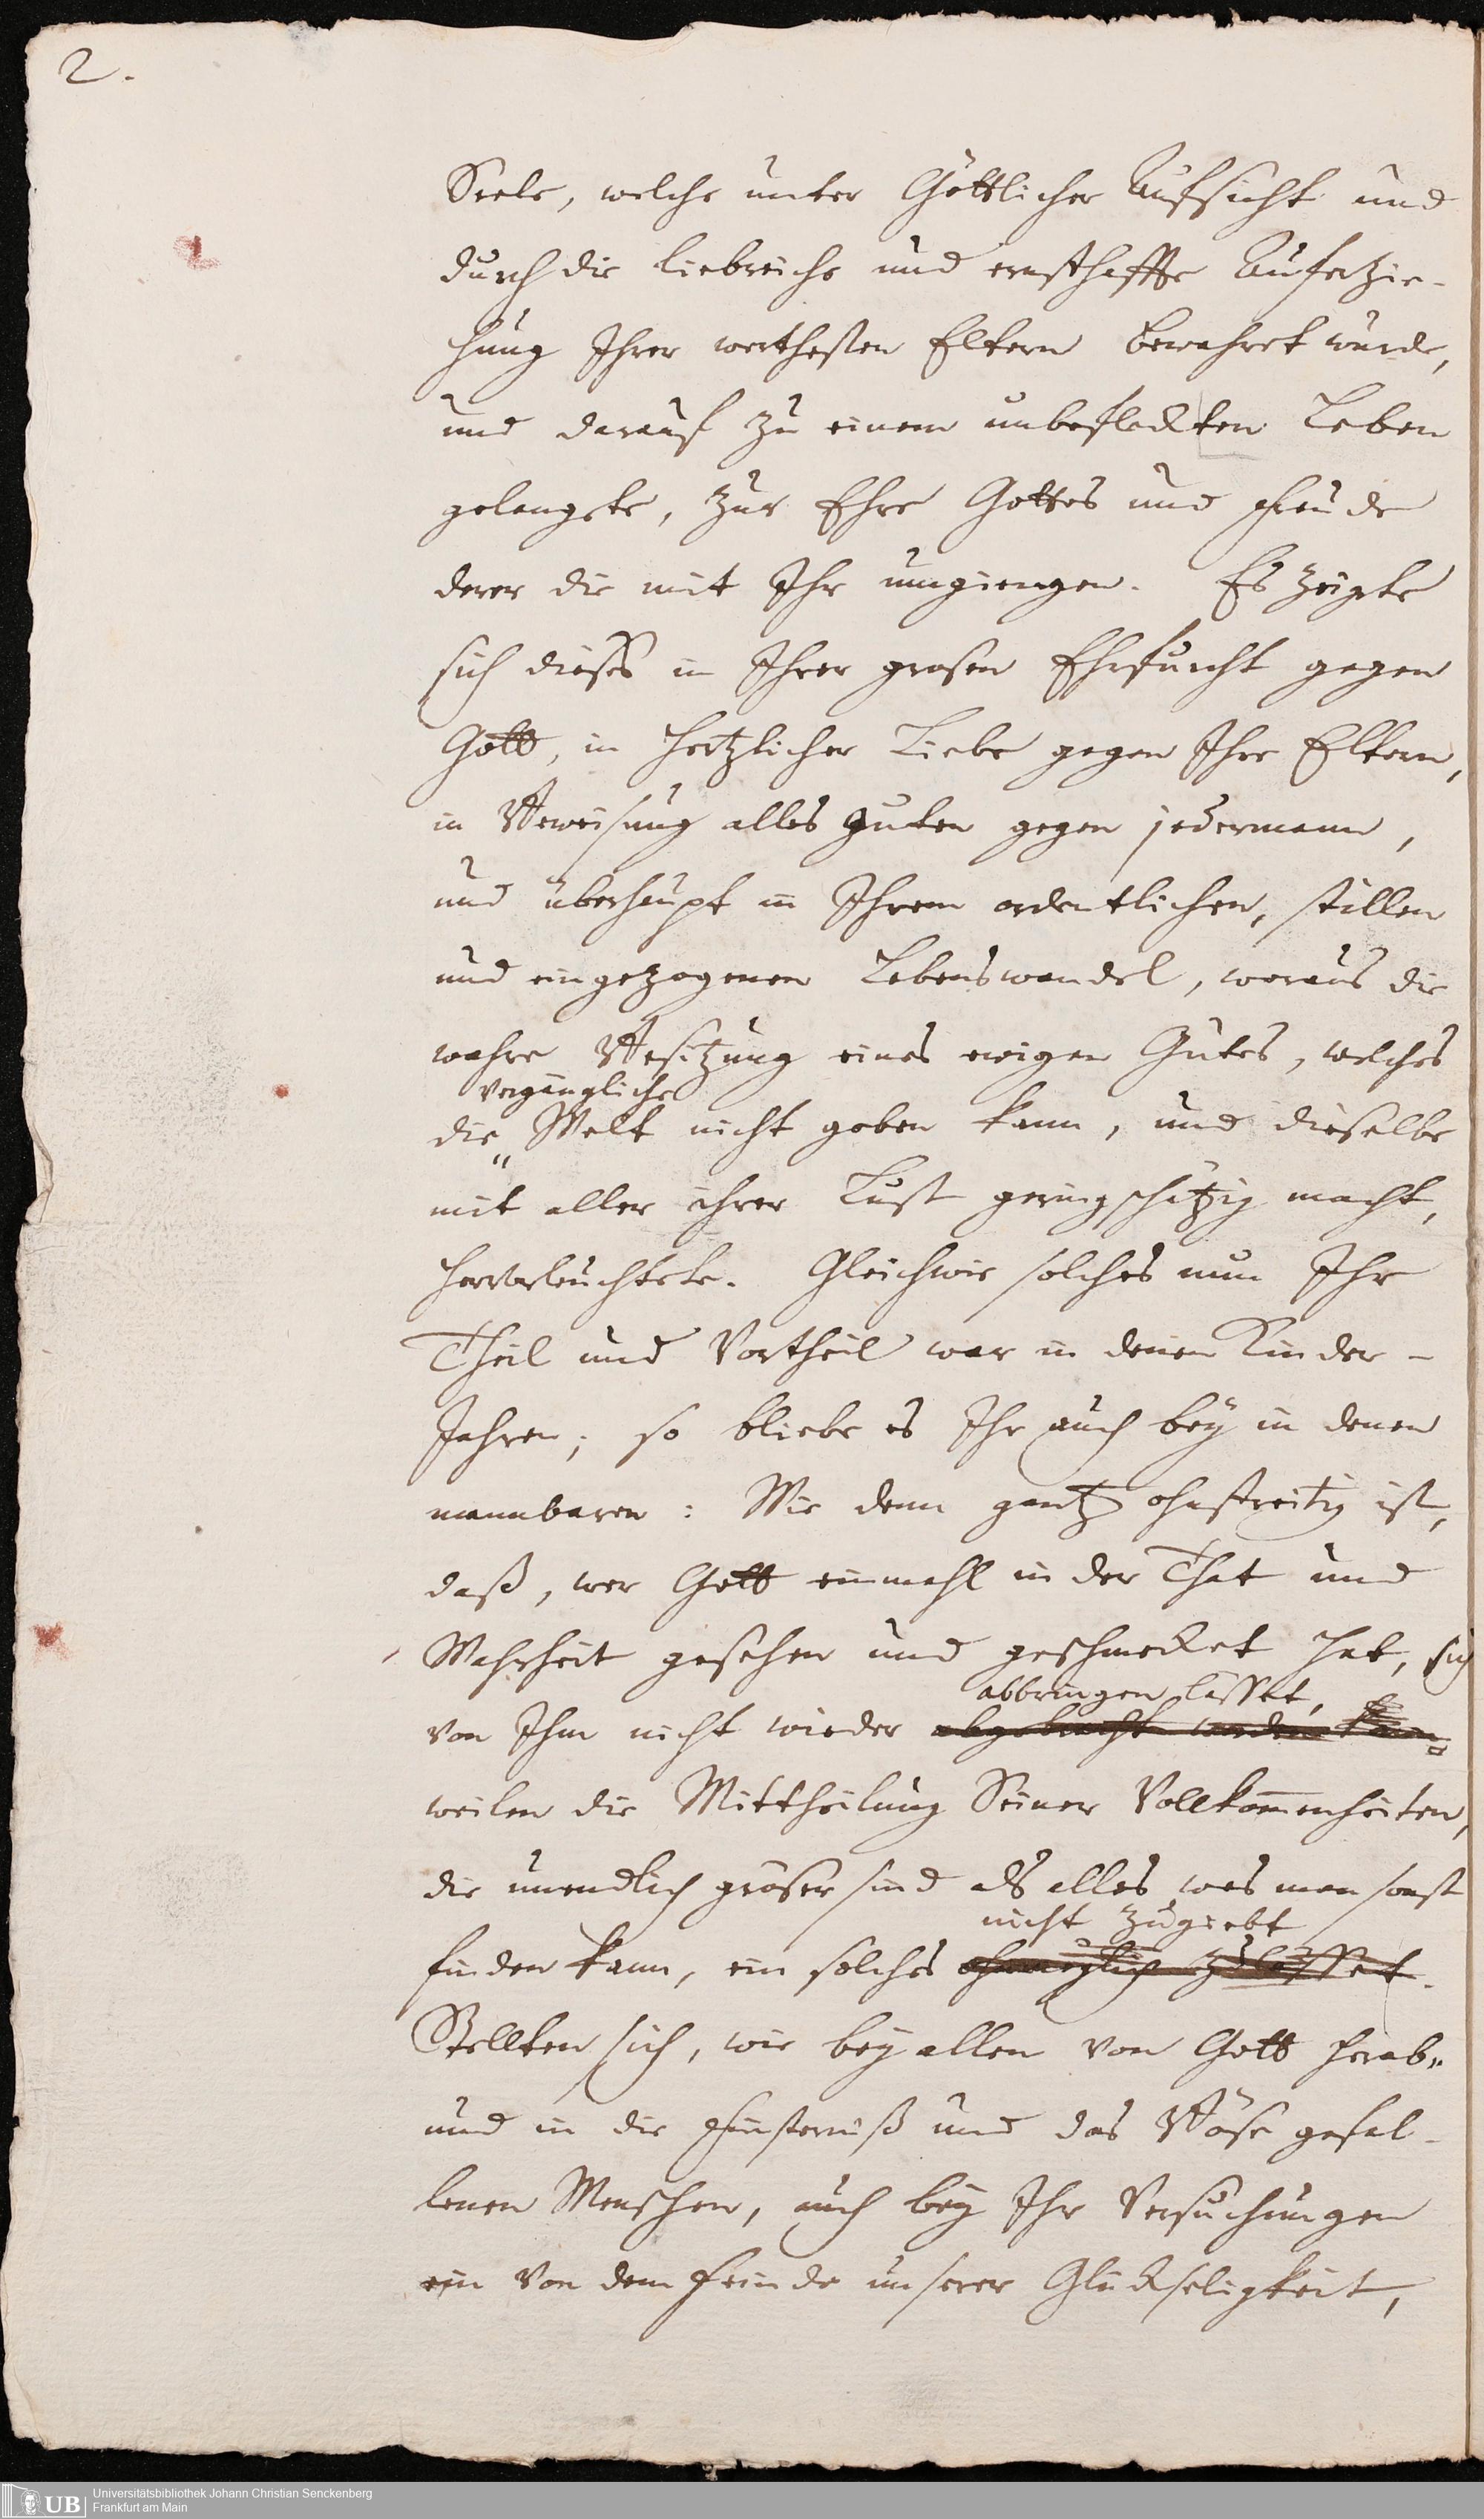 2.
Seele, welche unter Göttlicher Aufsicht und
durch die liebreiche und ernsthaffte Auferzie-
hung Ihrer werthesten Eltern bewahret wurde,
und darauf zu einem unbefleckten Leben
gelangete, zur Ehre Gottes und Freude
derer die mit Ihr umgiengen. Es zeigte
sich dieses in Ihrer grosen Ehrfurcht gegen
Gott, in hertzlicher Liebe gegen Ihre Eltern,
in Beweisung alles guten gegen jedermann,
und überhaupt in Ihrem ordentlichen, stillen
und eingezogenen Lebenswandel, woraus die
wahre Besitzung eines ewigen Gutes, welches
vergängliche
die " Welt nicht geben kann, und dieselbe
mit aller ihrer Lust geringschätzig macht,
hervorleuchtete. Gleichwie solches nun Ihr
Theil und Vortheil war in denen Kinder-
Jahren; so bliebe es Ihr auch bey in denen
mannbaren: Wie denn gantz ohnstreitig ist,
daß, wer Gott einmahl in der That und
Wahrheit gesehen und geschmecket hat, sich
abbringen lässet,
von Ihm nicht wieder abgebracht werden kan
weilen die Mittheilung Seiner Vollkom̅enheiten,
die unendlich gröser sind als alles was man sonst
nicht zugiebt
finden kann, ein solches ohnmöglich zulässet.
Stellten sich, wie bey allen von Gott herab"
und in die Finsterniß und das Böse gefal-
lenen Menschen, auch bey Ihr Versuchungen
ein von dem Feinde unserer Glückseligkeit,
UB
Universitätsbibliothek Johann Christian Senckenberg
Frankfurt am Main